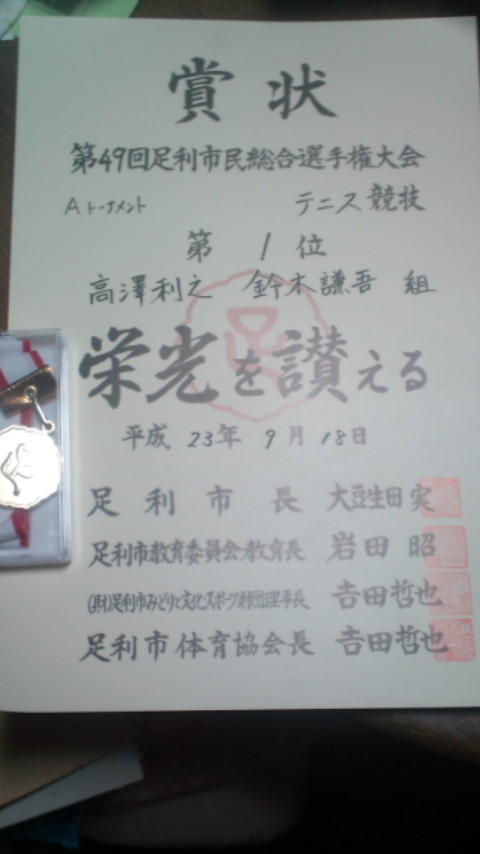 賞状
第49回足利市民総合選手権大会
Aトーナメント テニス競技
第 1 位
高澤利之 鈴木謙吾 組
栄光を讃える
平成 23年 9月 18日
足利市長 大豆生田実
足利市教育委員会教育長 岩田昭
(財)足利市みどりと文化・スポーツ財団理事長 𠮷田哲也
足利市体育協会長 𠮷田哲也